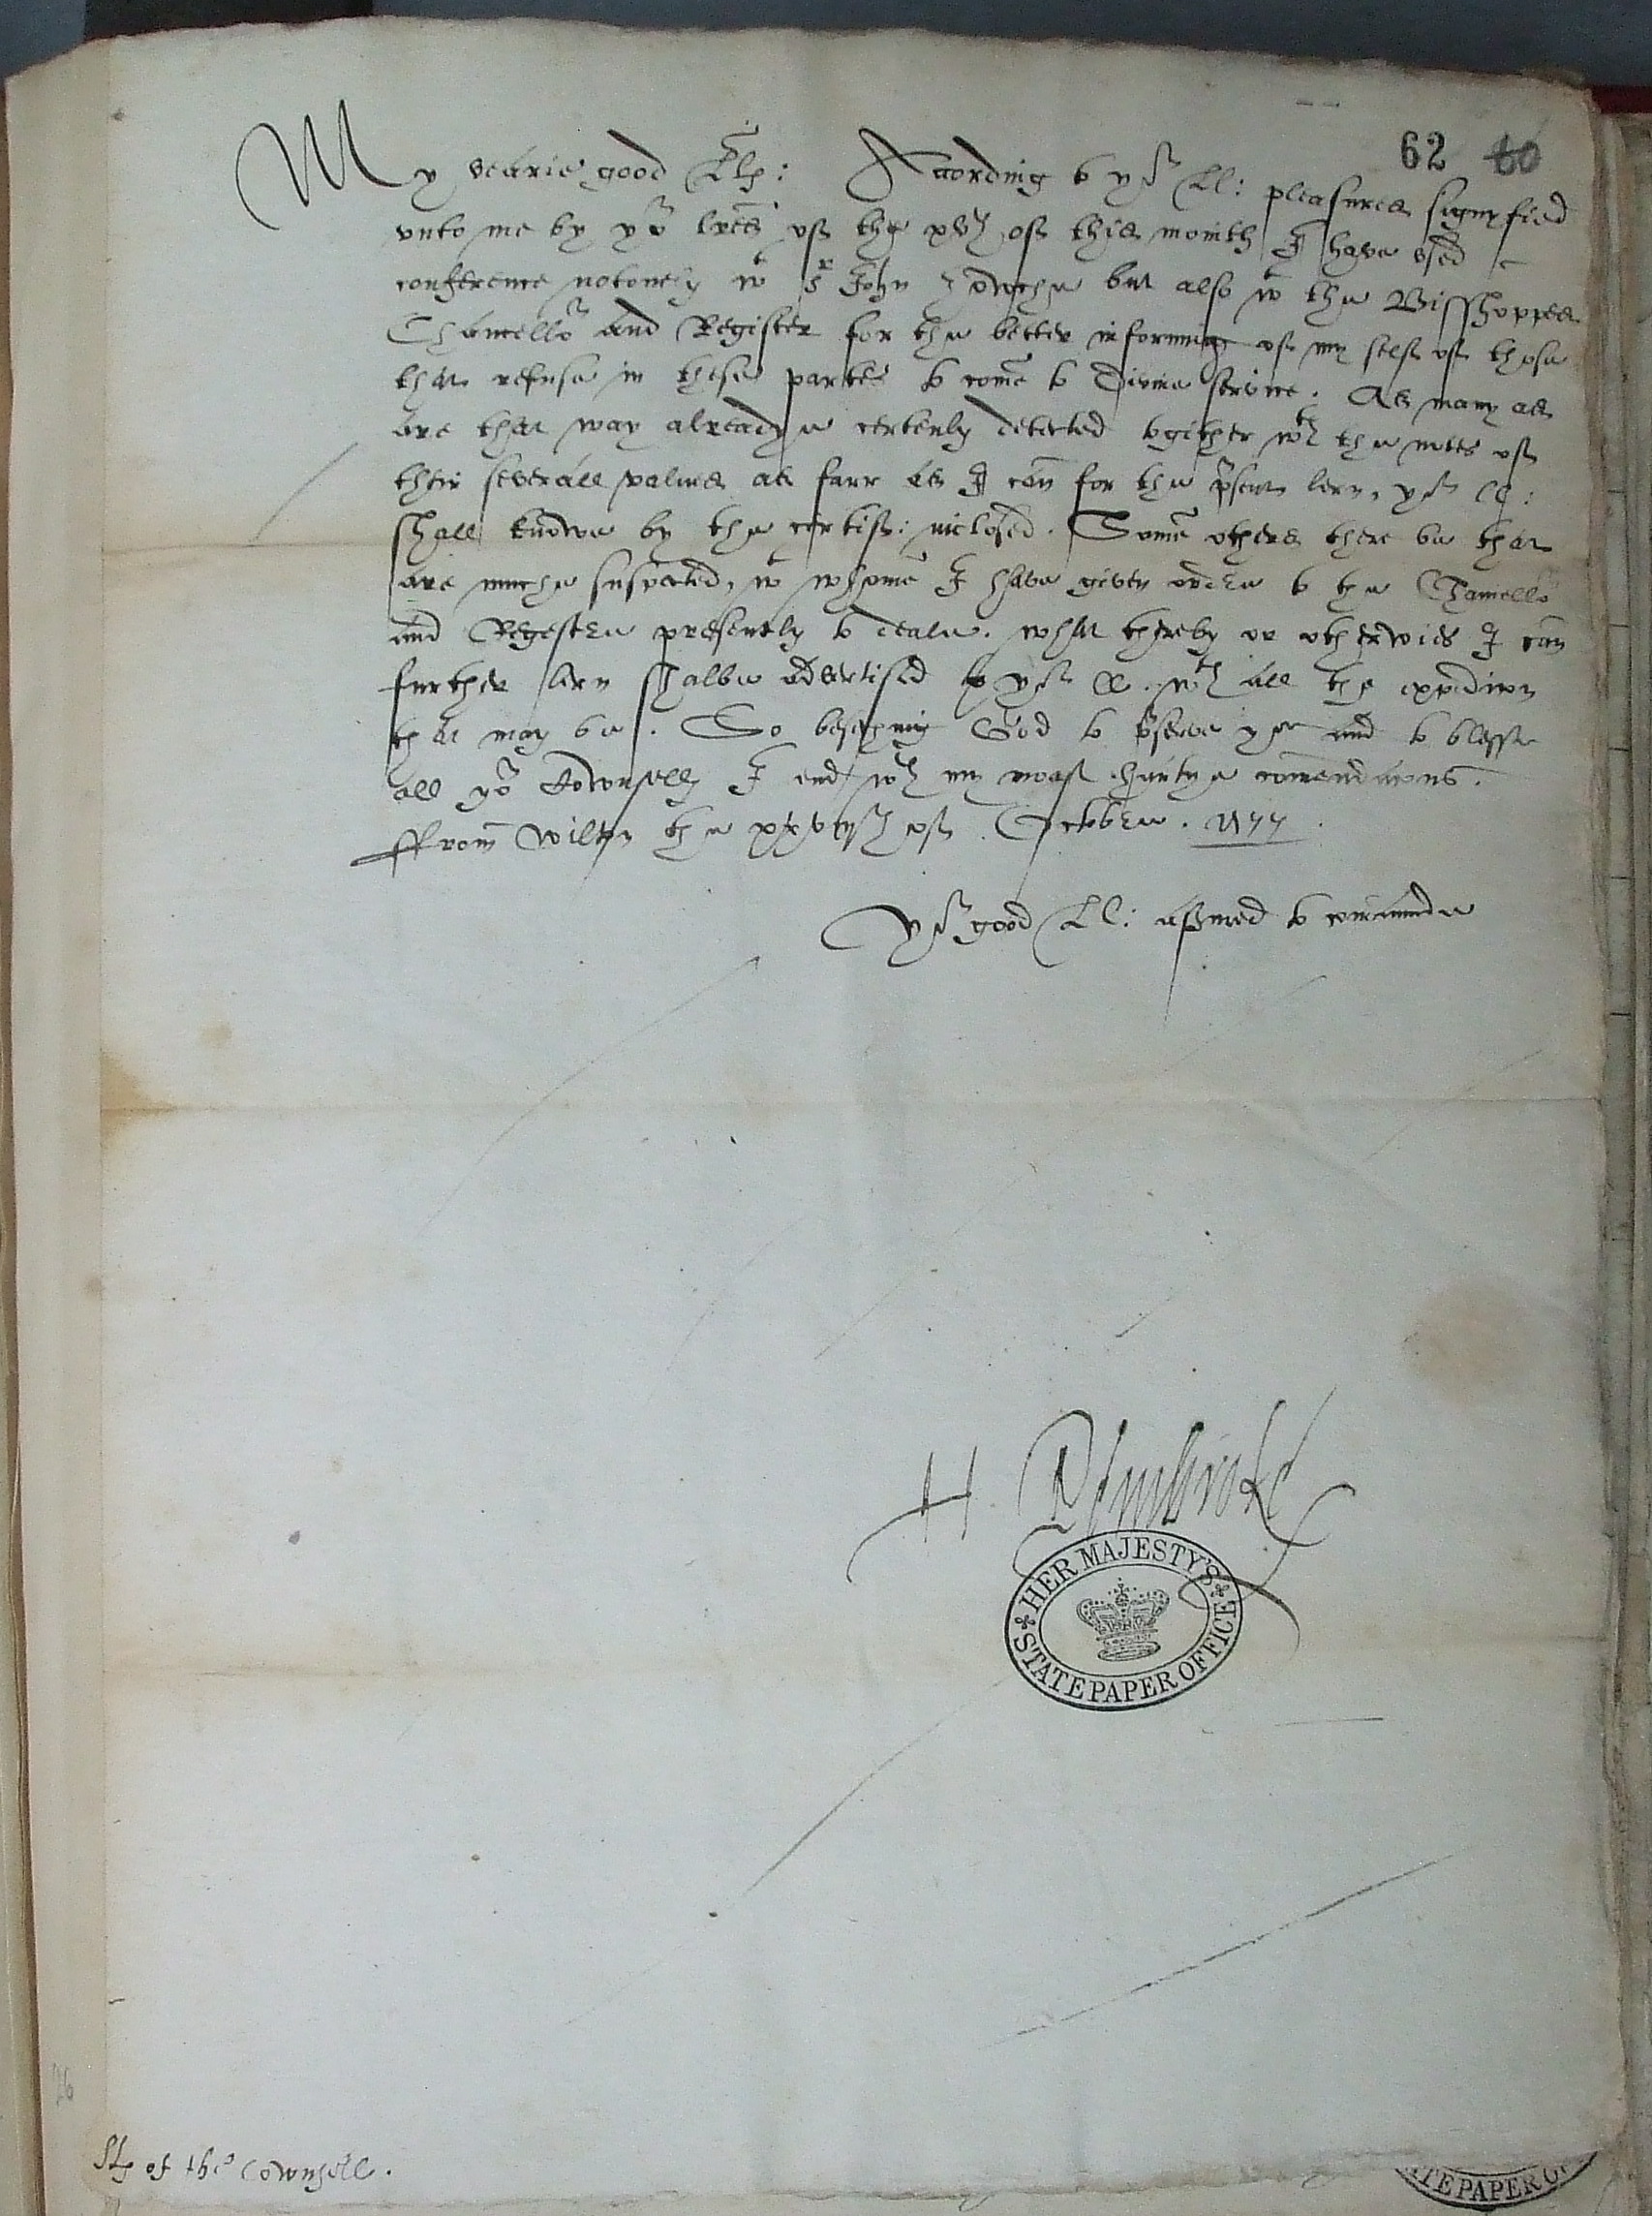 62 60
My vearie good Llp: According to yor Ll: pleasures signyfied
vnto me by yor lres of the xvth of this month I have vsed
conference notonely wt Sr John Zowche but also wt the Bisshoppes
Chauncellor and Register for the better informing of my self of those
that refuse in these partes to come to Divine service. As many as
are that way alreadye certenly detected togither wth the notes of
their severall values as farr as I can for the psent lern, yor Ll:
shall knowe by the certif: inclosed. Some others there be that
are muche suspected, wt whome I have given order to the Chauncellor
and Regester presently to deale. what thereby or otherwies I can
further lern shalbe advertised to yor Ll. wth all the expedicon
that may be. So beseching God to pserve yow and to blesse
all yor Cownsells I end wth my moast hartye comendacons.
ffrom Wilton the of October. 1577.
Yor good Ll: assured to commaunde
H. Pembroke
HER MAJESTY'S
STATE PAPER OFFICE
Llp of the Cownsell.
26
ATE PAPER O